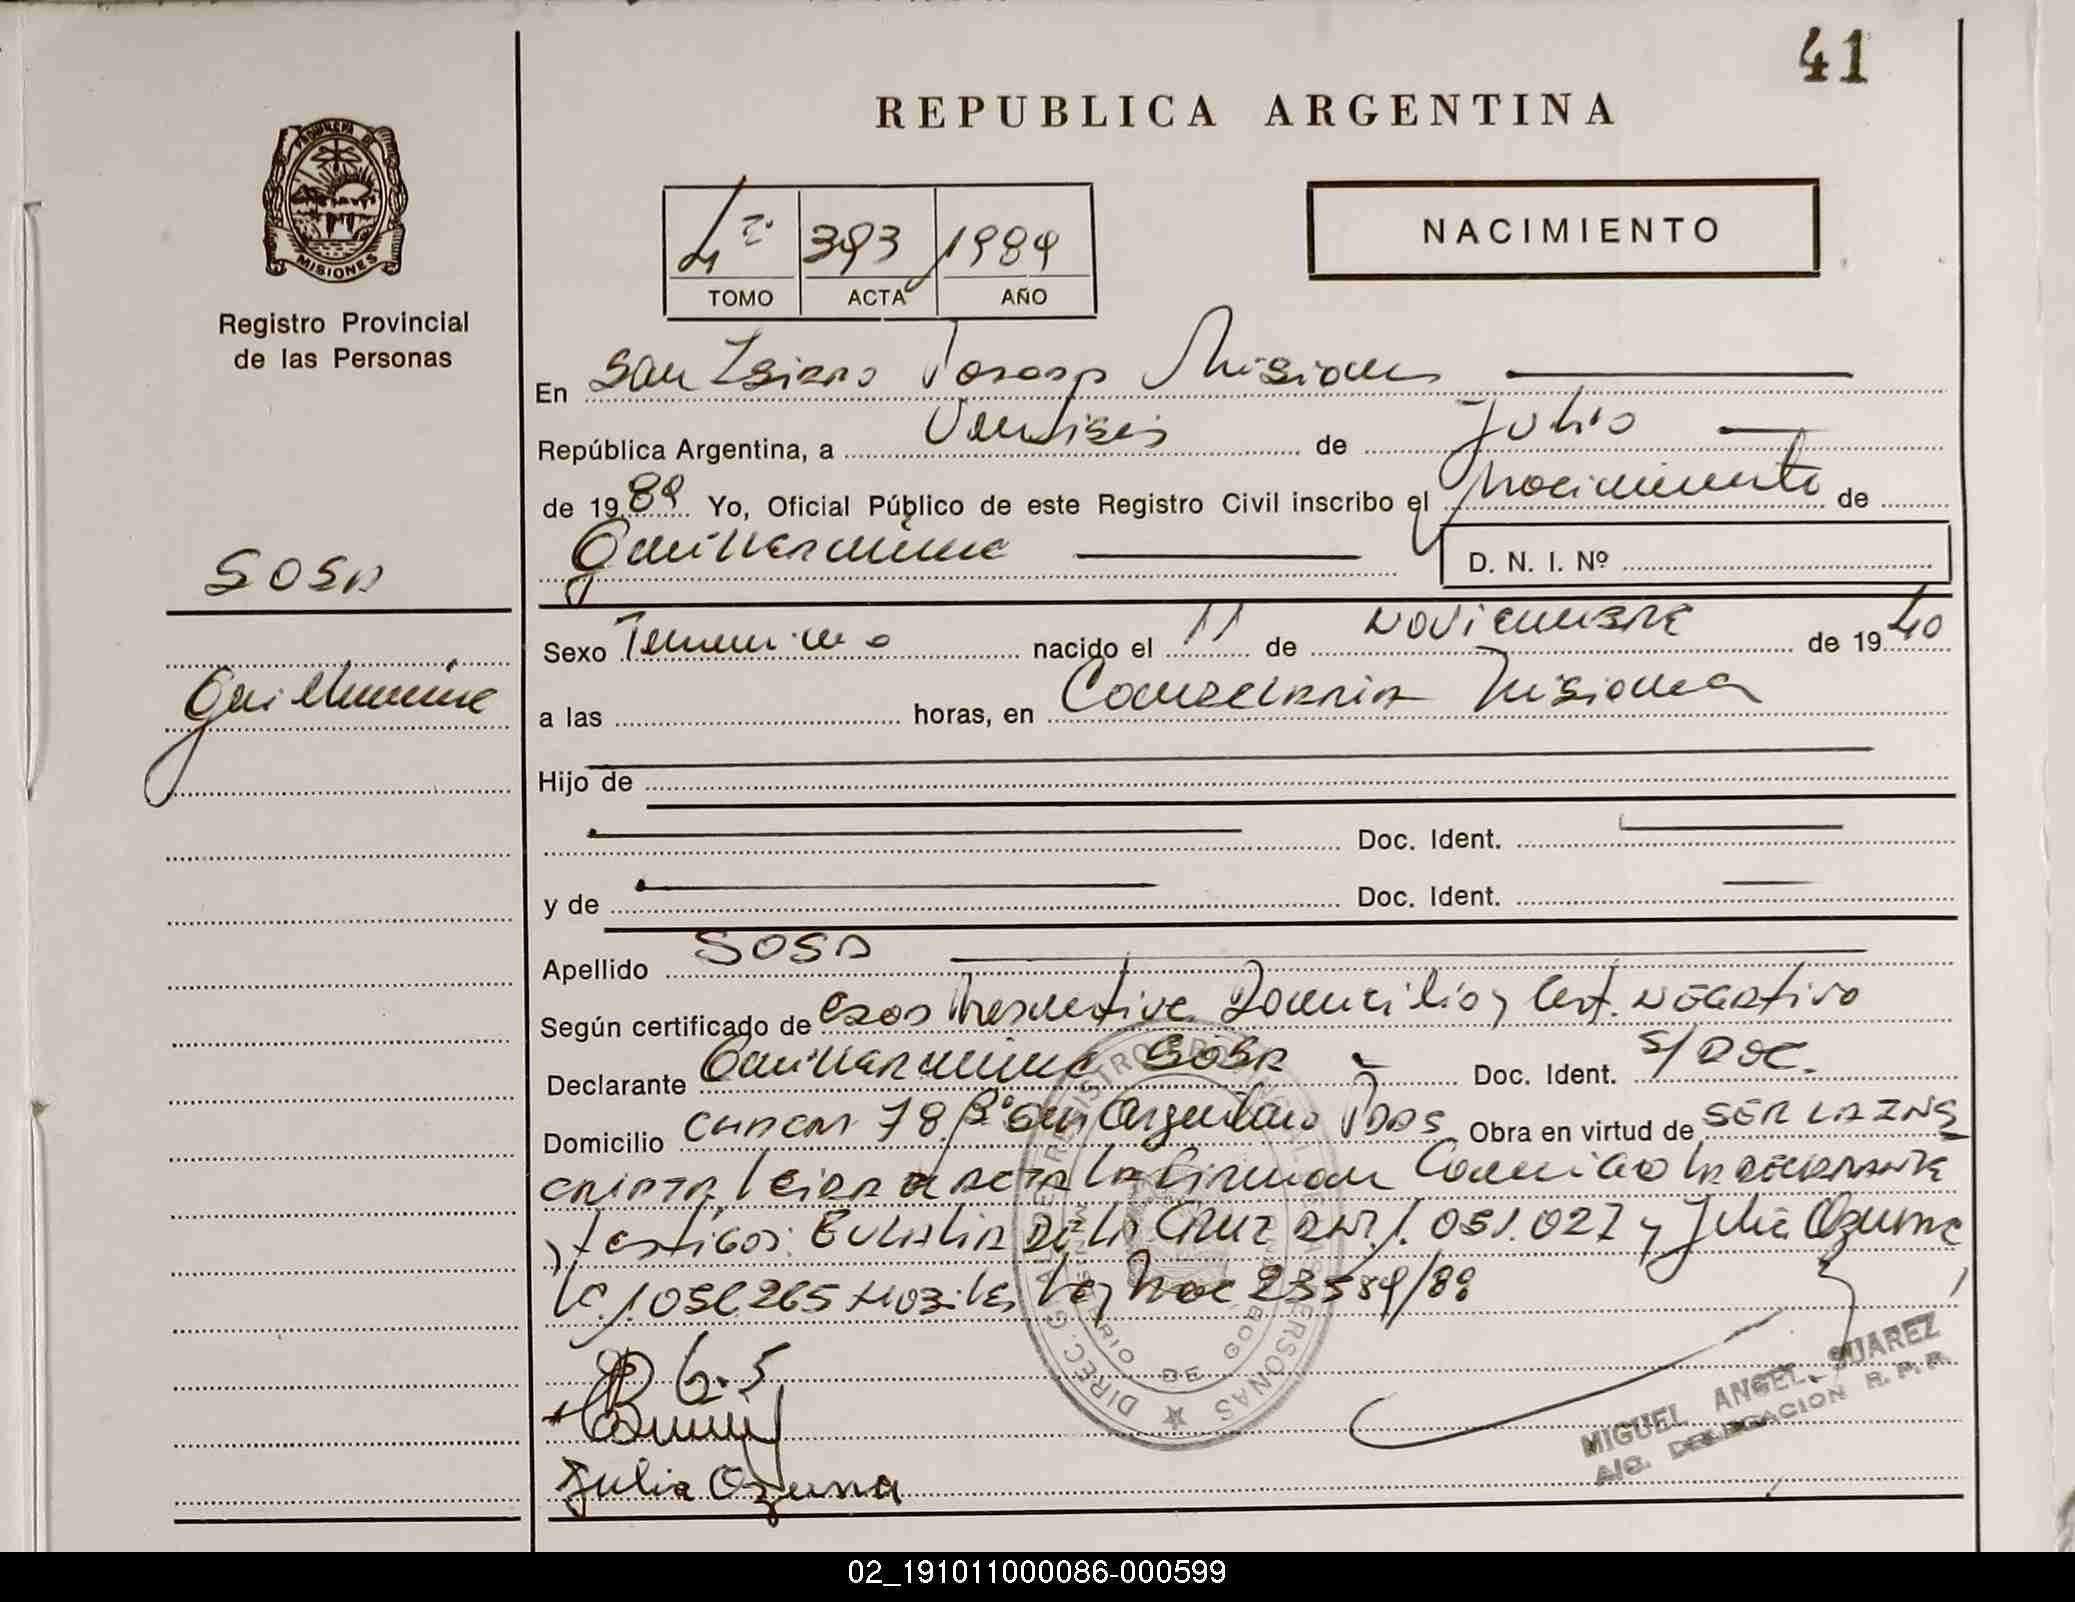 41
REPUBLICA ARGENTINA
PROVINCIA DE
MISIONES
Registro Provincial
de las Personas
NACIMIENTO
4 393 1989
TOMO ACTA AÑO
En San Isidro Posadas Misiones
República Argentina, a Veintiseis de Julio
de 1989 Yo, Oficial Público de este Registro Civil inscribo el Nacimiento de
Guillermina
D. N. I. Nº
SOSA
Guillermina
Sexo Femenino nacido el 11 de NOVIEMBRE de 1940
a las horas, en Candelaria Misiones
Hijo de
Doc. Ident.
y de Doc. Ident.
Apellido SOSA
Según certificado de Domicilio y Cert. Negativo
Declarante Guillermina SOSA Doc. Ident. S/DOC.
Domicilio CHACRA 78 Bº San Argentino Pdas Obra en virtud de SER LA INS
CRIPTA leida el acta la firman Conmigo la declarante
y testigos: Eulalia De la Cruz 1.051.027 y Julia Ozuna
Ley Nac 23584/88
Julia Ozuna
DIREC. GRAL. DE REGISTRO PROVINCIAL DE LAS PERSONAS
MINISTERIO DE GOBIERNO
MIGUEL ANGEL SUAREZ
A/C. DELEGACION R. P. P.
02_191011000086-000599